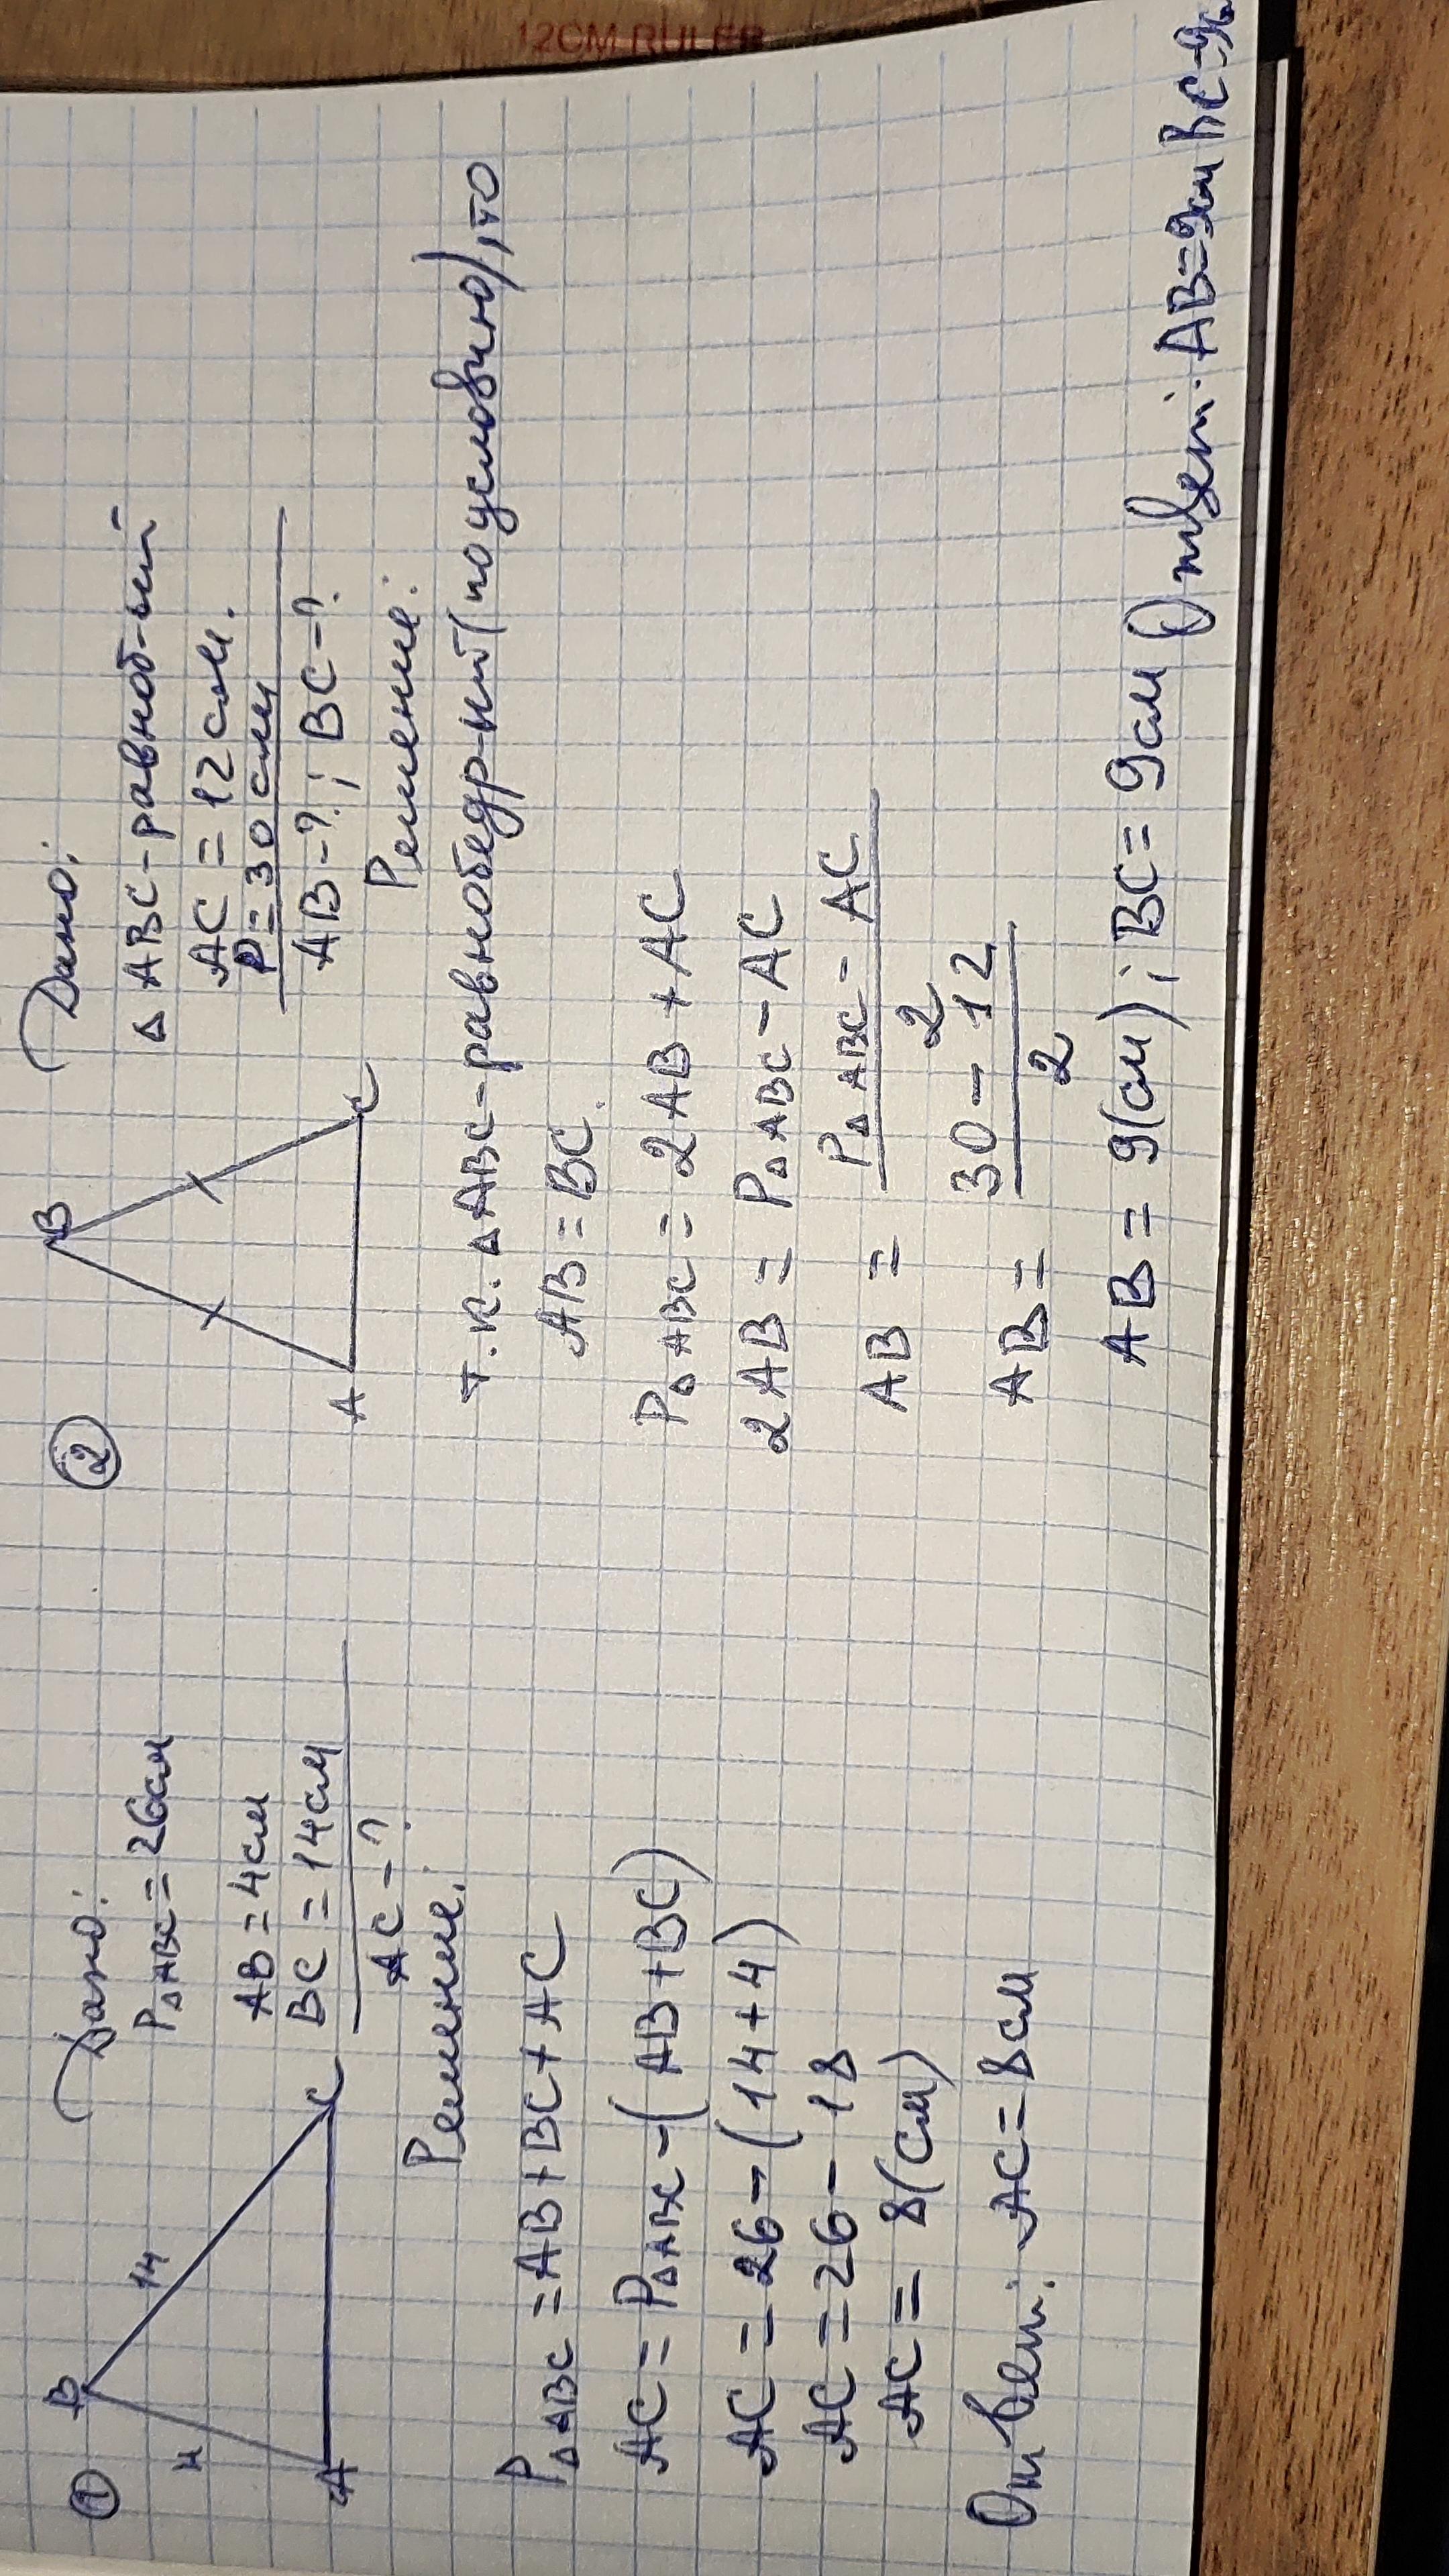 12CM RULER
①
B
4
14
A
C
Дано:
P△ABC = 26см
AB = 4см
BC = 14см
AC - ?
Решение:
P△ABC = AB + BC + AC
AC = P△ABC - (AB + BC)
AC = 26 - (14 + 4)
AC = 26 - 18
AC = 8 (см)
Ответ: AC = 8см
②
B
A
C
Дано:
△ ABC - равноб-ый
AC = 12 см.
P = 30 см
AB - ?; BC - ?
Решение:
т.к. △ABC - равнобедр-ный (по условию), то
AB = BC.
P△ABC = 2AB + AC
2AB = P△ABC - AC
AB = P△ABC - AC / 2
AB = 30 - 12 / 2
AB = 9(см); BC = 9см Ответ: AB=9см BC=9см